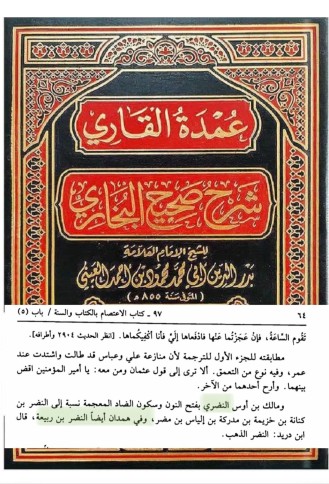 عُمْدَةُ القَارِي
شَرْحُ صَحِيحِ البُخَارِيِّ
للشيخ الإمام العلامة
بدر الدين أبي محمد محمود بن أحمد العيني
المتوفى سنة ٨٥٥ هـ
٦٤
٩٧ - كتاب الاعتصام بالكتاب والسنة / باب (٥)
تَقُوم السَّاعَةُ، فإنْ عَجَزْتُما عَنْها فادْفَعاها إلَيَّ فأنا أكْفِيكُماها. [انظر الحديث ٢٩٠٤ وأطرافه].
مطابقته للجزء الأول للترجمة لأن منازعة علي وعباس قد طالت واشتدت عند
عمر، وفيه نوع من التعمق. ألا ترى إلى قول عثمان ومن معه: يا أمير المؤمنين اقض
بينهما. وأرح أحدهما من الآخر.
ومالك بن أوس النضري بفتح النون وسكون الضاد المعجمة نسبة إلى النضر بن
كنانة بن خزيمة بن مدركة بن إلياس بن مضر، وفي همدان أيضاً النضر بن ربيعة، قال
ابن دريد: النضر الذهب.